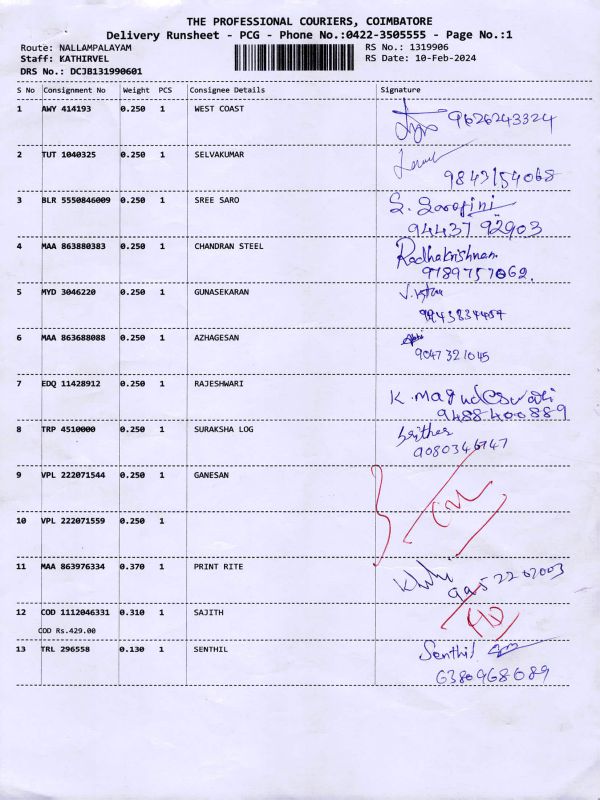 THE PROFESSIONAL COURIERS, COIMBATORE
Delivery Runsheet - PCG - Phone No.:0422-3505555 - Page No.:1
Route: NALLAMPALAYAM RS No.: 1319906
Staff: KATHIRVEL RS Date: 10-Feb-2024
DRS No.: DCJB131990601
S No Consignment No Weight PCS Consignee Details Signature
1 AWY 414193 0.250 1 WEST COAST 9626243324
2 TUT 1040325 0.250 1 SELVAKUMAR
9843154068
3 BLR 5550846009 0.250 1 SREE SARO S. Sarojini
94437 92903
4 MAA 863880383 0.250 1 CHANDRAN STEEL Radhakrishnam
9789757062.
5 MYD 3046220 0.250 1 GUNASEKARAN
6 MAA 863688088 0.250 1 AZHAGESAN
9047321045
7 EDQ 11428912 0.250 1 RAJESHWARI K. Magudeswari
9488400889
8 TRP 4510000 0.250 1 SURAKSHA LOG
9 VPL 222071544 0.250 1 GANESAN
10 VPL 222071559 0.250 1
11 MAA 863976334 0.370 1 PRINT RITE
12 COD 1112046331 0.310 1 SAJITH
COD Rs.429.00
13 TRL 296558 0.130 1 SENTHIL Senthil
6380968089